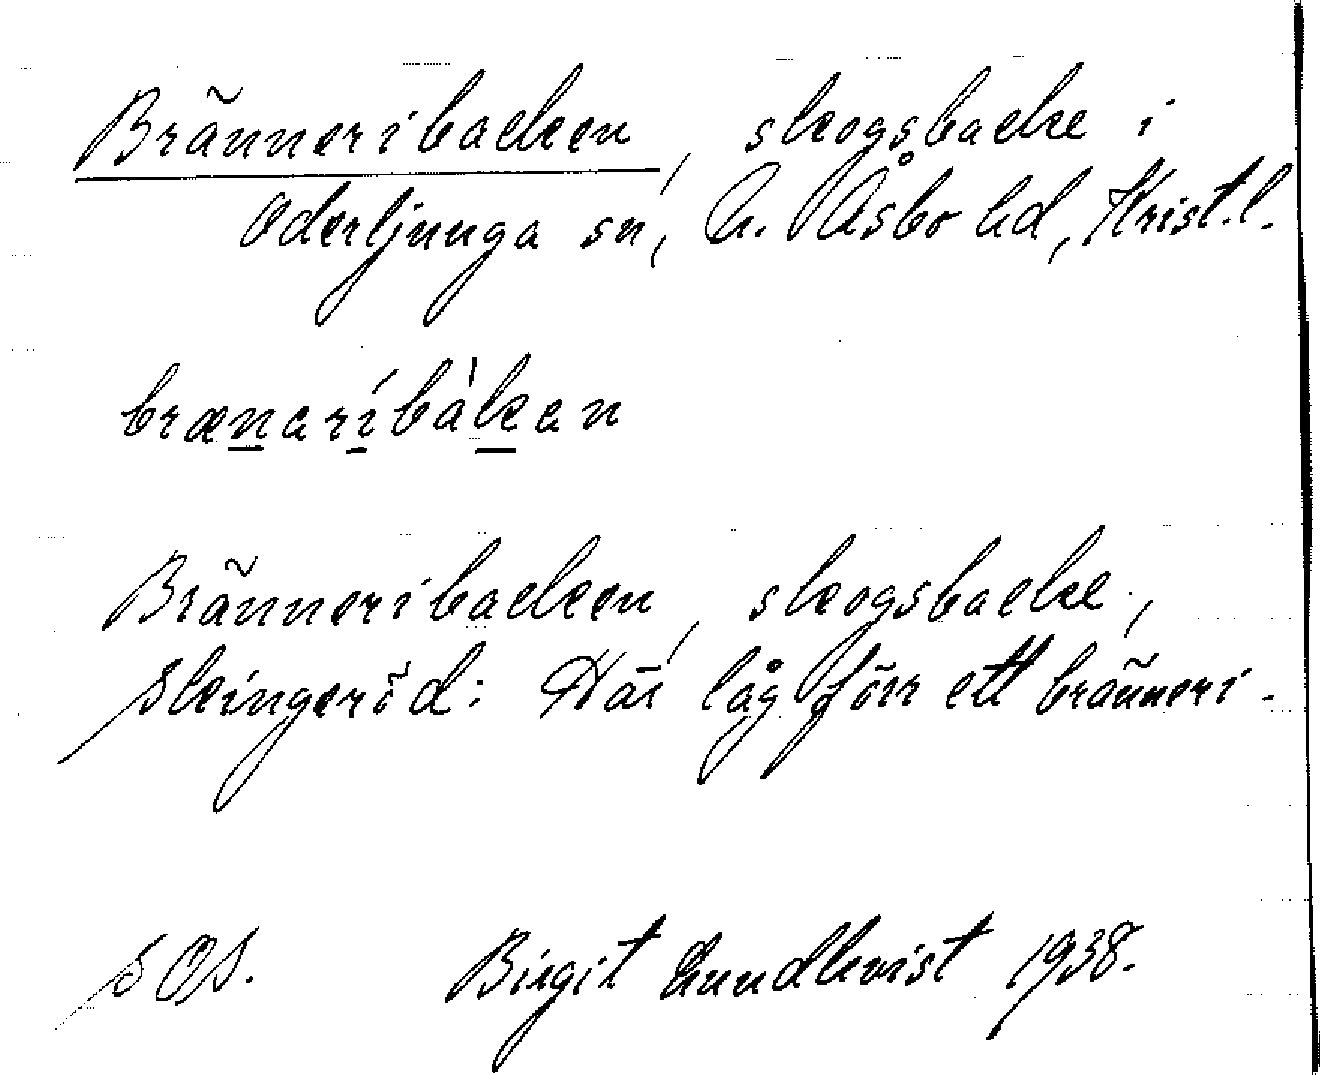 Bränneribacken, skogsbacke i
Oderljunga sn, N. Åsbo hd, Krist.l.
brænaríbàkan
Bränneribacken, skogsbacke,
Skingeröd: Här låg förr ett bränneri.
SOS. Birgit Lundkvist 1938.